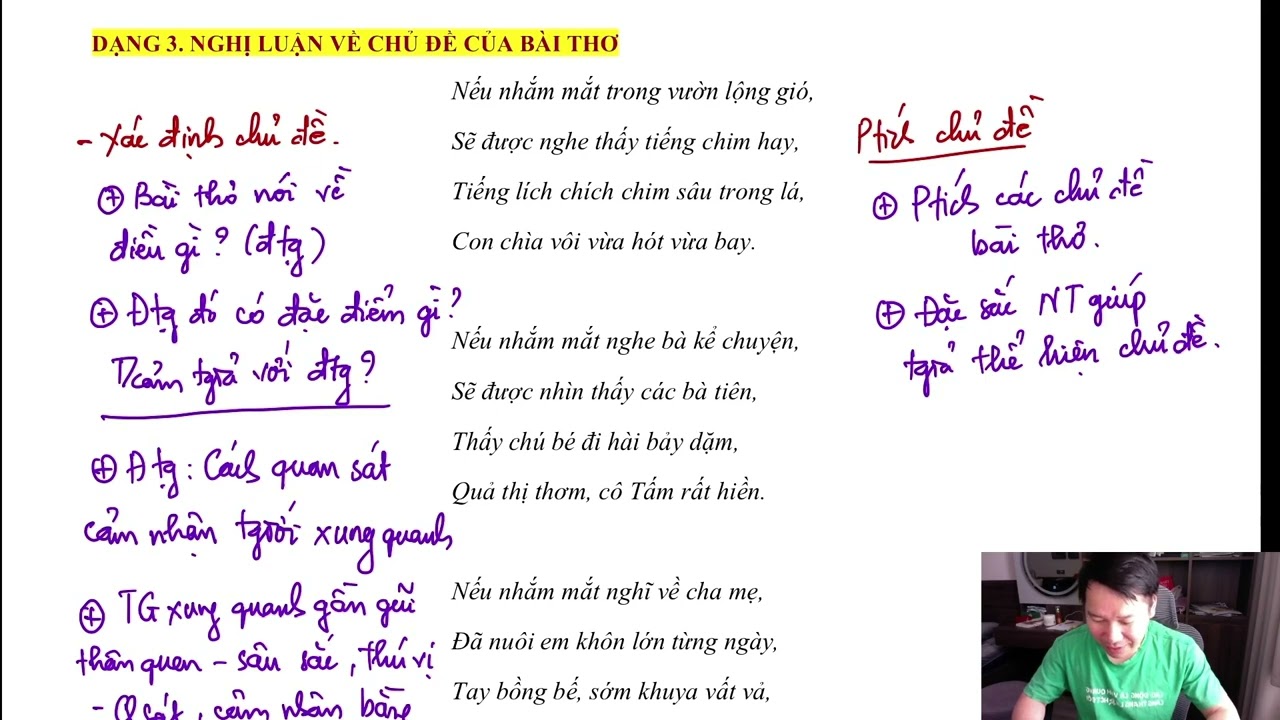 DẠNG 3. NGHỊ LUẬN VỀ CHỦ ĐỀ CỦA BÀI THƠ
- Xác định chủ đề.
⊕ Bài thơ nói về
điều gì? (đtg)
⊕ Đtg đó có đặc điểm gì?
T/cảm tgiả với đtg?
⊕ Đtg: Cách quan sát
cảm nhận tgiới xung quanh
⊕ TG xung quanh gần gũi
thân quen - sâu sắc, thú vị
- Q sát, cảm nhận bằng
Nếu nhắm mắt trong vườn lộng gió,
Sẽ được nghe thấy tiếng chim hay,
Tiếng lích chích chim sâu trong lá,
Con chìa vôi vừa hót vừa bay.
Nếu nhắm mắt nghe bà kể chuyện,
Sẽ được nhìn thấy các bà tiên,
Thấy chú bé đi hài bảy dặm,
Quả thị thơm, cô Tấm rất hiền.
Nếu nhắm mắt nghĩ về cha mẹ,
Đã nuôi em khôn lớn từng ngày,
Tay bồng bế, sớm khuya vất vả,
Ptích chủ đề
⊕ Ptích các chủ đề
bài thơ.
⊕ Đặc sắc NT giúp
tgiả thể hiện chủ đề.